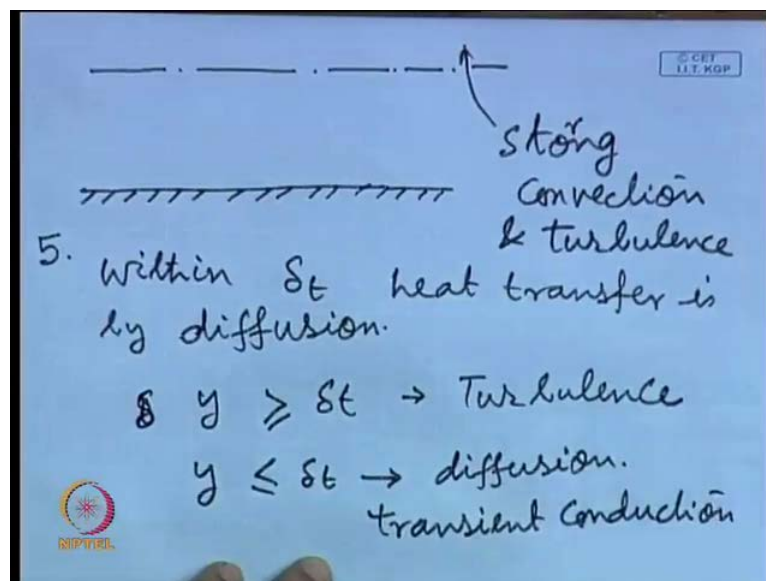 © CET
I.I.T. KGP
Strong
Convection
& turbulence
5. Within δt heat transfer is
by diffusion.
y ≥ δt → Turbulence
y ≤ δt → diffusion.
transient Conduction
NPTEL